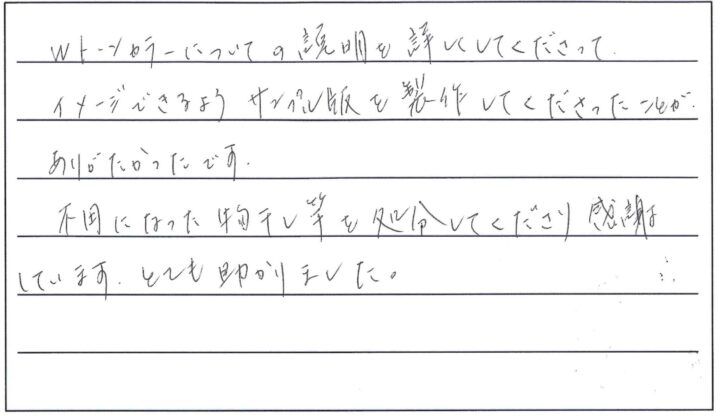 Wトーンカラーについての説明を詳しくしてくださって、
イメージできるようサンプル版を製作してくださったことが、
ありがたかったです。
不用になった物干し竿を処分してくださり感謝
しています。とても助かりました。